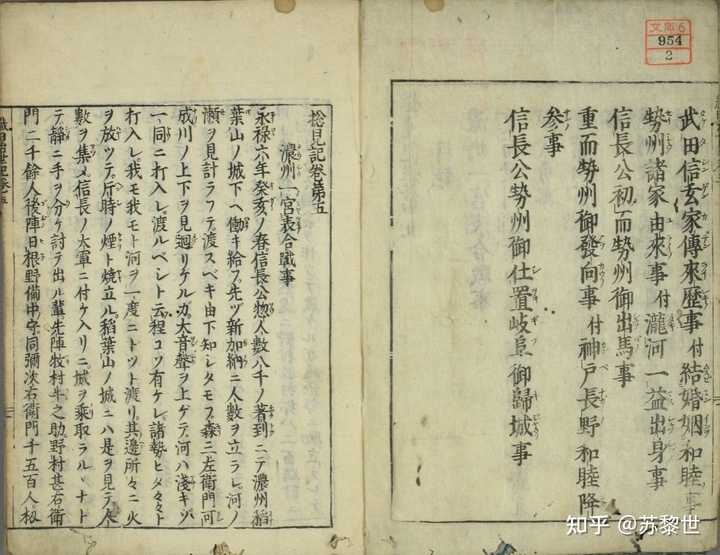 武田信玄家傳來歷事付結婚姻和睦事
勢州諸家由來事付瀧河一益出身事
信長公初而勢州御出馬事
重而勢州御發向事付神戸長野和睦降
参事
信長公勢州御仕置岐阜御歸城事
文庫6
954
2
捴見記卷第五
濃州一宮表合戰事
永禄六年癸亥ノ春信長公惣人數八千ノ著到ニテ濃州稲
葉山ノ城下ヘ働キ給フ先ツ新加納ニ人數ヲ立ラレ河ノ
瀬ヲ見計ラフテ渡スベキ由下知シタモフ森三左衛門河
成川ノ上下ヲ見廻リケルガ大音聲ヲ上ゲテ河ハ淺キゾ
一同ニ打入レ渡ルベシト云程コソ有ケレ諸勢ヒタ々々ト
打入レ我モ我モト河ヲ一度ニトツト渡リ其邊所々ニ火
ヲ放ツテ片時ノ煙ト燒立ル稲葉山ノ城ニハ是ヲ見テ人
數ヲ集メ信長ノ大軍ニ付ケ入リニ城ヲ乘取ラルヽナト
テ靜ニ手ヲ分ケ討テ出ル輩先陣牧村牛之助野村甚右衛
門二千餘人後陣日根野備中守同彌次右衛門千五百人扨
知乎 @苏黎世